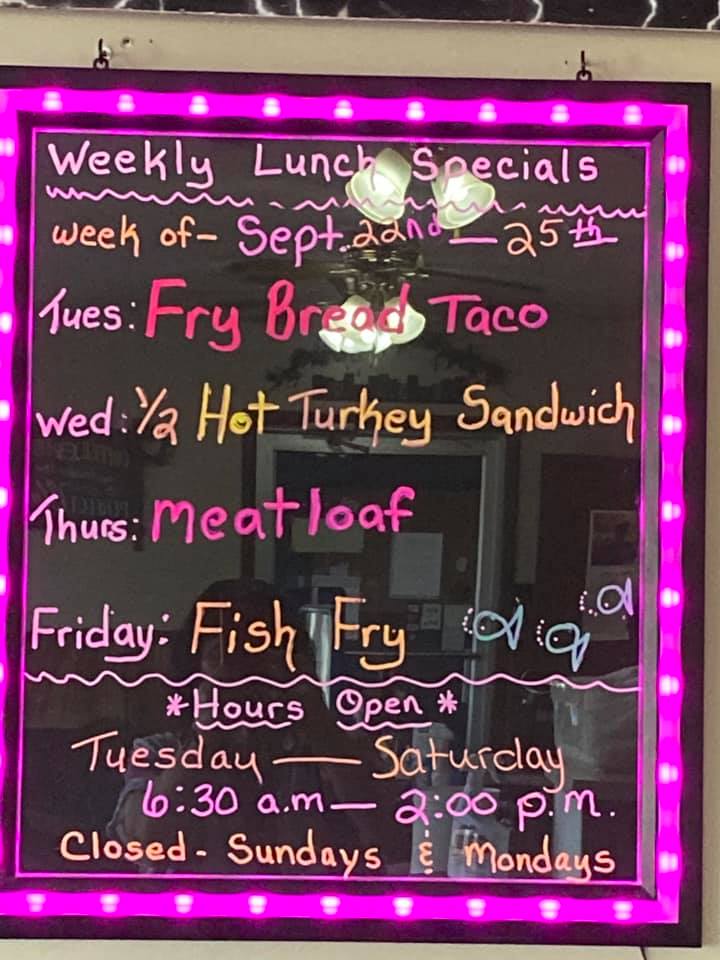 Weekly Lunch Specials
week of- Sept. 22nd — 25th
Tues: Fry Bread Taco
Wed: 1/2 Hot Turkey Sandwich
Thurs: meatloaf
Friday: Fish Fry
*Hours Open*
Tuesday — Saturday
6:30 a.m — 2:00 p.m.
Closed - Sundays & Mondays